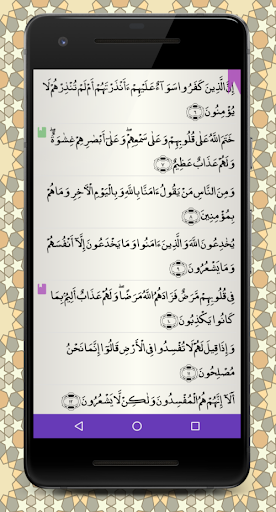 إِنَّ ٱلَّذِينَ كَفَرُوا۟ سَوَآءٌ عَلَيْهِمْ ءَأَنذَرْتَهُمْ أَمْ لَمْ تُنذِرْهُمْ لَا
يُؤْمِنُونَ ﴿٦﴾
خَتَمَ ٱللَّهُ عَلَىٰ قُلُوبِهِمْ وَعَلَىٰ سَمْعِهِمْ ۖ وَعَلَىٰٓ أَبْصَٰرِهِمْ غِشَٰوَةٌ ۖ
وَلَهُمْ عَذَابٌ عَظِيمٌ ﴿٧﴾
وَمِنَ ٱلنَّاسِ مَن يَقُولُ ءَامَنَّا بِٱللَّهِ وَبِٱلْيَوْمِ ٱلْءَاخِرِ وَمَا هُم
بِمُؤْمِنِينَ ﴿٨﴾
يُخَٰدِعُونَ ٱللَّهَ وَٱلَّذِينَ ءَامَنُوا۟ وَمَا يَخْدَعُونَ إِلَّآ أَنفُسَهُمْ
وَمَا يَشْعُرُونَ ﴿٩﴾
فِى قُلُوبِهِم مَّرَضٌ فَزَادَهُمُ ٱللَّهُ مَرَضًا ۖ وَلَهُمْ عَذَابٌ أَلِيمٌۢ بِمَا
كَانُوا۟ يَكْذِبُونَ ﴿١٠﴾
وَإِذَا قِيلَ لَهُمْ لَا تُفْسِدُوا۟ فِى ٱلْأَرْضِ قَالُوٓا۟ إِنَّمَا نَحْنُ
مُصْلِحُونَ ﴿١١﴾
أَلَآ إِنَّهُمْ هُمُ ٱلْمُفْسِدُونَ وَلَٰكِن لَّا يَشْعُرُونَ ﴿١٢﴾